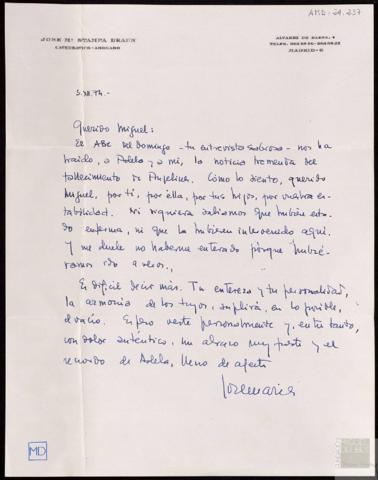 AMD-29.237
JOSE Mª STAMPA BRAUN
CATEDRATICO-ABOGADO
MADRID-6
5.XII.74.-
Querido Miguel:
El ABC del Domingo -tu entrevista sabrosa- nos ha
traido, a Adela y a mí, la noticia tremenda del
fallecimiento de Angelines. Cómo lo siento, querido
Miguel, por ti, por ella, por tus hijos, por vuestra
estabilidad. Ni siquiera sabíamos que hubiera esta-
do enferma, ni que la hubieran intervenido aquí.
Y me duele no haberme enterado porque hubié-
ramos ido a veros.
Es difícil decir más. Tu entereza y tu personalidad,
la armonía de los tuyos, suplirá, en lo posible,
el vacío. Espero verte personalmente y, en tu tanto,
con dolor auténtico, un abrazo muy fuerte y el
recuerdo de Adela, lleno de afecto
José María
MD